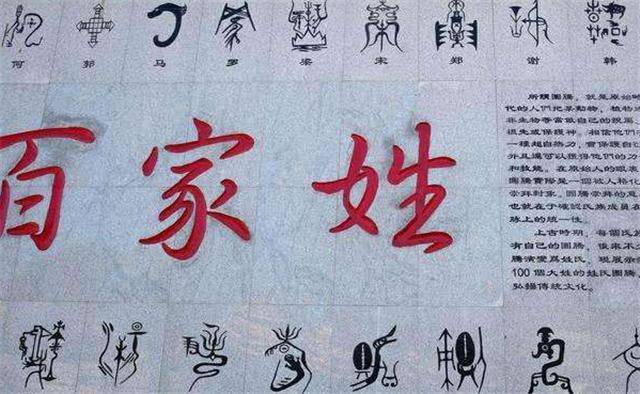 何 郭 马 罗 梁 宋 郑 谢 韩
百家姓
所謂圖騰，就是原始時
代的人們把某動物，植物
非生物等當做自己的親屬
祖先或保護神。相信他們
一種超自然力，會保護自
并且還可以獲得他們的力
和技能。在原始人的眼裏
圖騰實際是一個被人格化
崇拜對象。圖騰崇拜的意
也就在于確認氏族成員在
緣上的統一性。
上古時期，每個氏
有自己的圖騰，後來不
騰演變爲姓氏，現展示
100個大姓的姓氏圖騰
弘揚傳統文化。